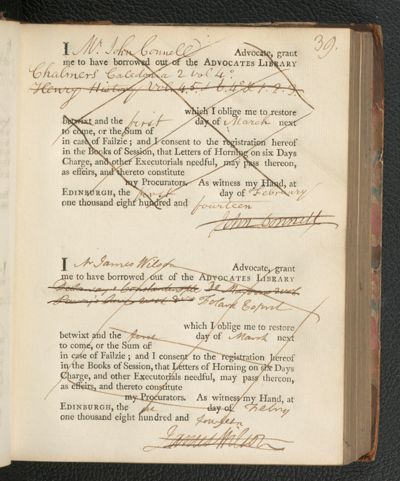 39.
I Mr. John Connell Advocate, grant
me to have borrowed out of the ADVOCATES LIBRARY
Chalmers Caledonia 2 vol 4º
Henry History Vol. 4.5. & 6. 4º & 1. 2. 3.
which I oblige me to restore
betwixt and the first day of March next
to come, or the Sum of
in case of Failzie; and I consent to the registration hereof
in the Books of Session, that Letters of Horning on six Days
Charge, and other Executorials needful, may pass thereon,
as effeirs, and thereto constitute
my Procurators. As witness my Hand, at
EDINBURGH, the first day of February
one thousand eight hundred and fourteen
John Connell
I James Wilson Advocate, grant
me to have borrowed out of the ADVOCATES LIBRARY
which I oblige me to restore
betwixt and the day of March next
to come, or the Sum of
in case of Failzie; and I consent to the registration hereof
in the Books of Session, that Letters of Horning on six Days
Charge, and other Executorials needful, may pass thereon,
as effeirs, and thereto constitute
my Procurators. As witness my Hand, at
EDINBURGH, the day of Febry
one thousand eight hundred and
James Wilson